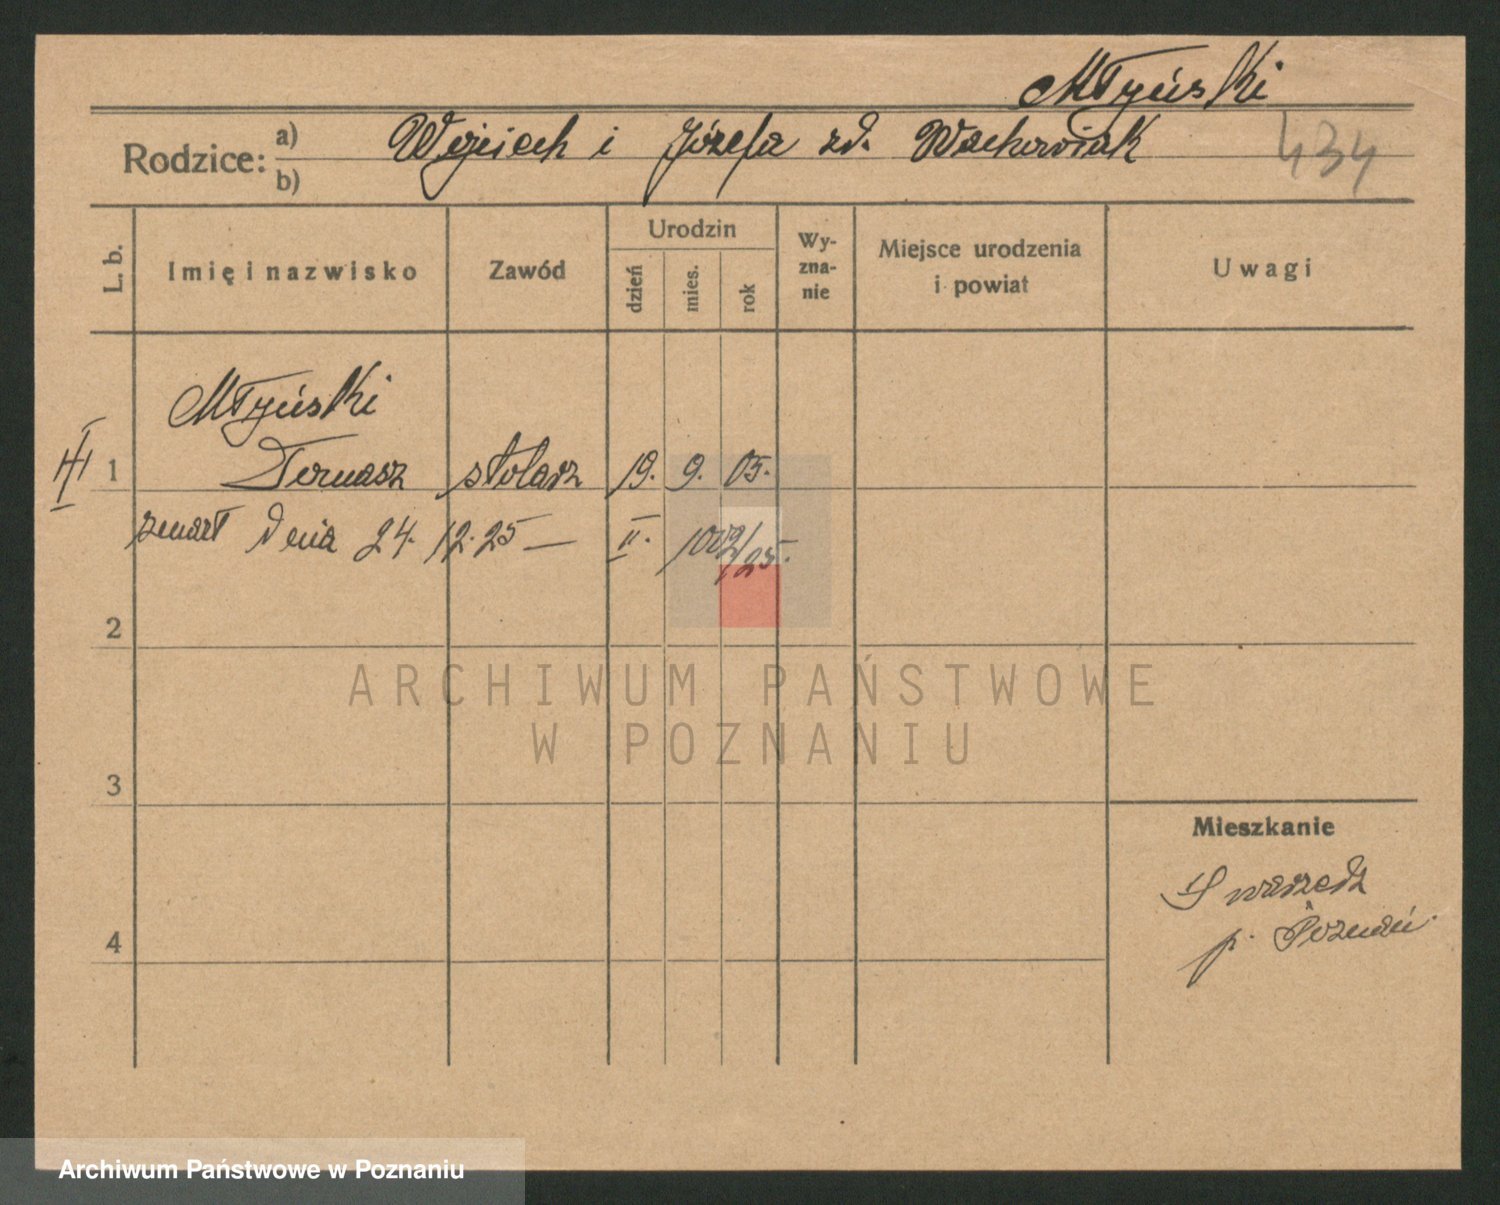 Młyński
Rodzice: a) b) Wojciech i Józefa zd. Wachowiak 434
L. b. Imię i nazwisko Zawód Urodzin dzień mies. rok Wy-zna-nie Miejsce urodzenia i powiat Uwagi
Młyński
III 1 Tomasz stolarz 19. 9. 05.
zmarł dnia 24. 12. 25 — II. 1002/25.
2
ARCHIWUM PAŃSTWOWE
W POZNANIU
3
Mieszkanie
Swarzędz
4 p. Poznań.
Archiwum Państwowe w Poznaniu